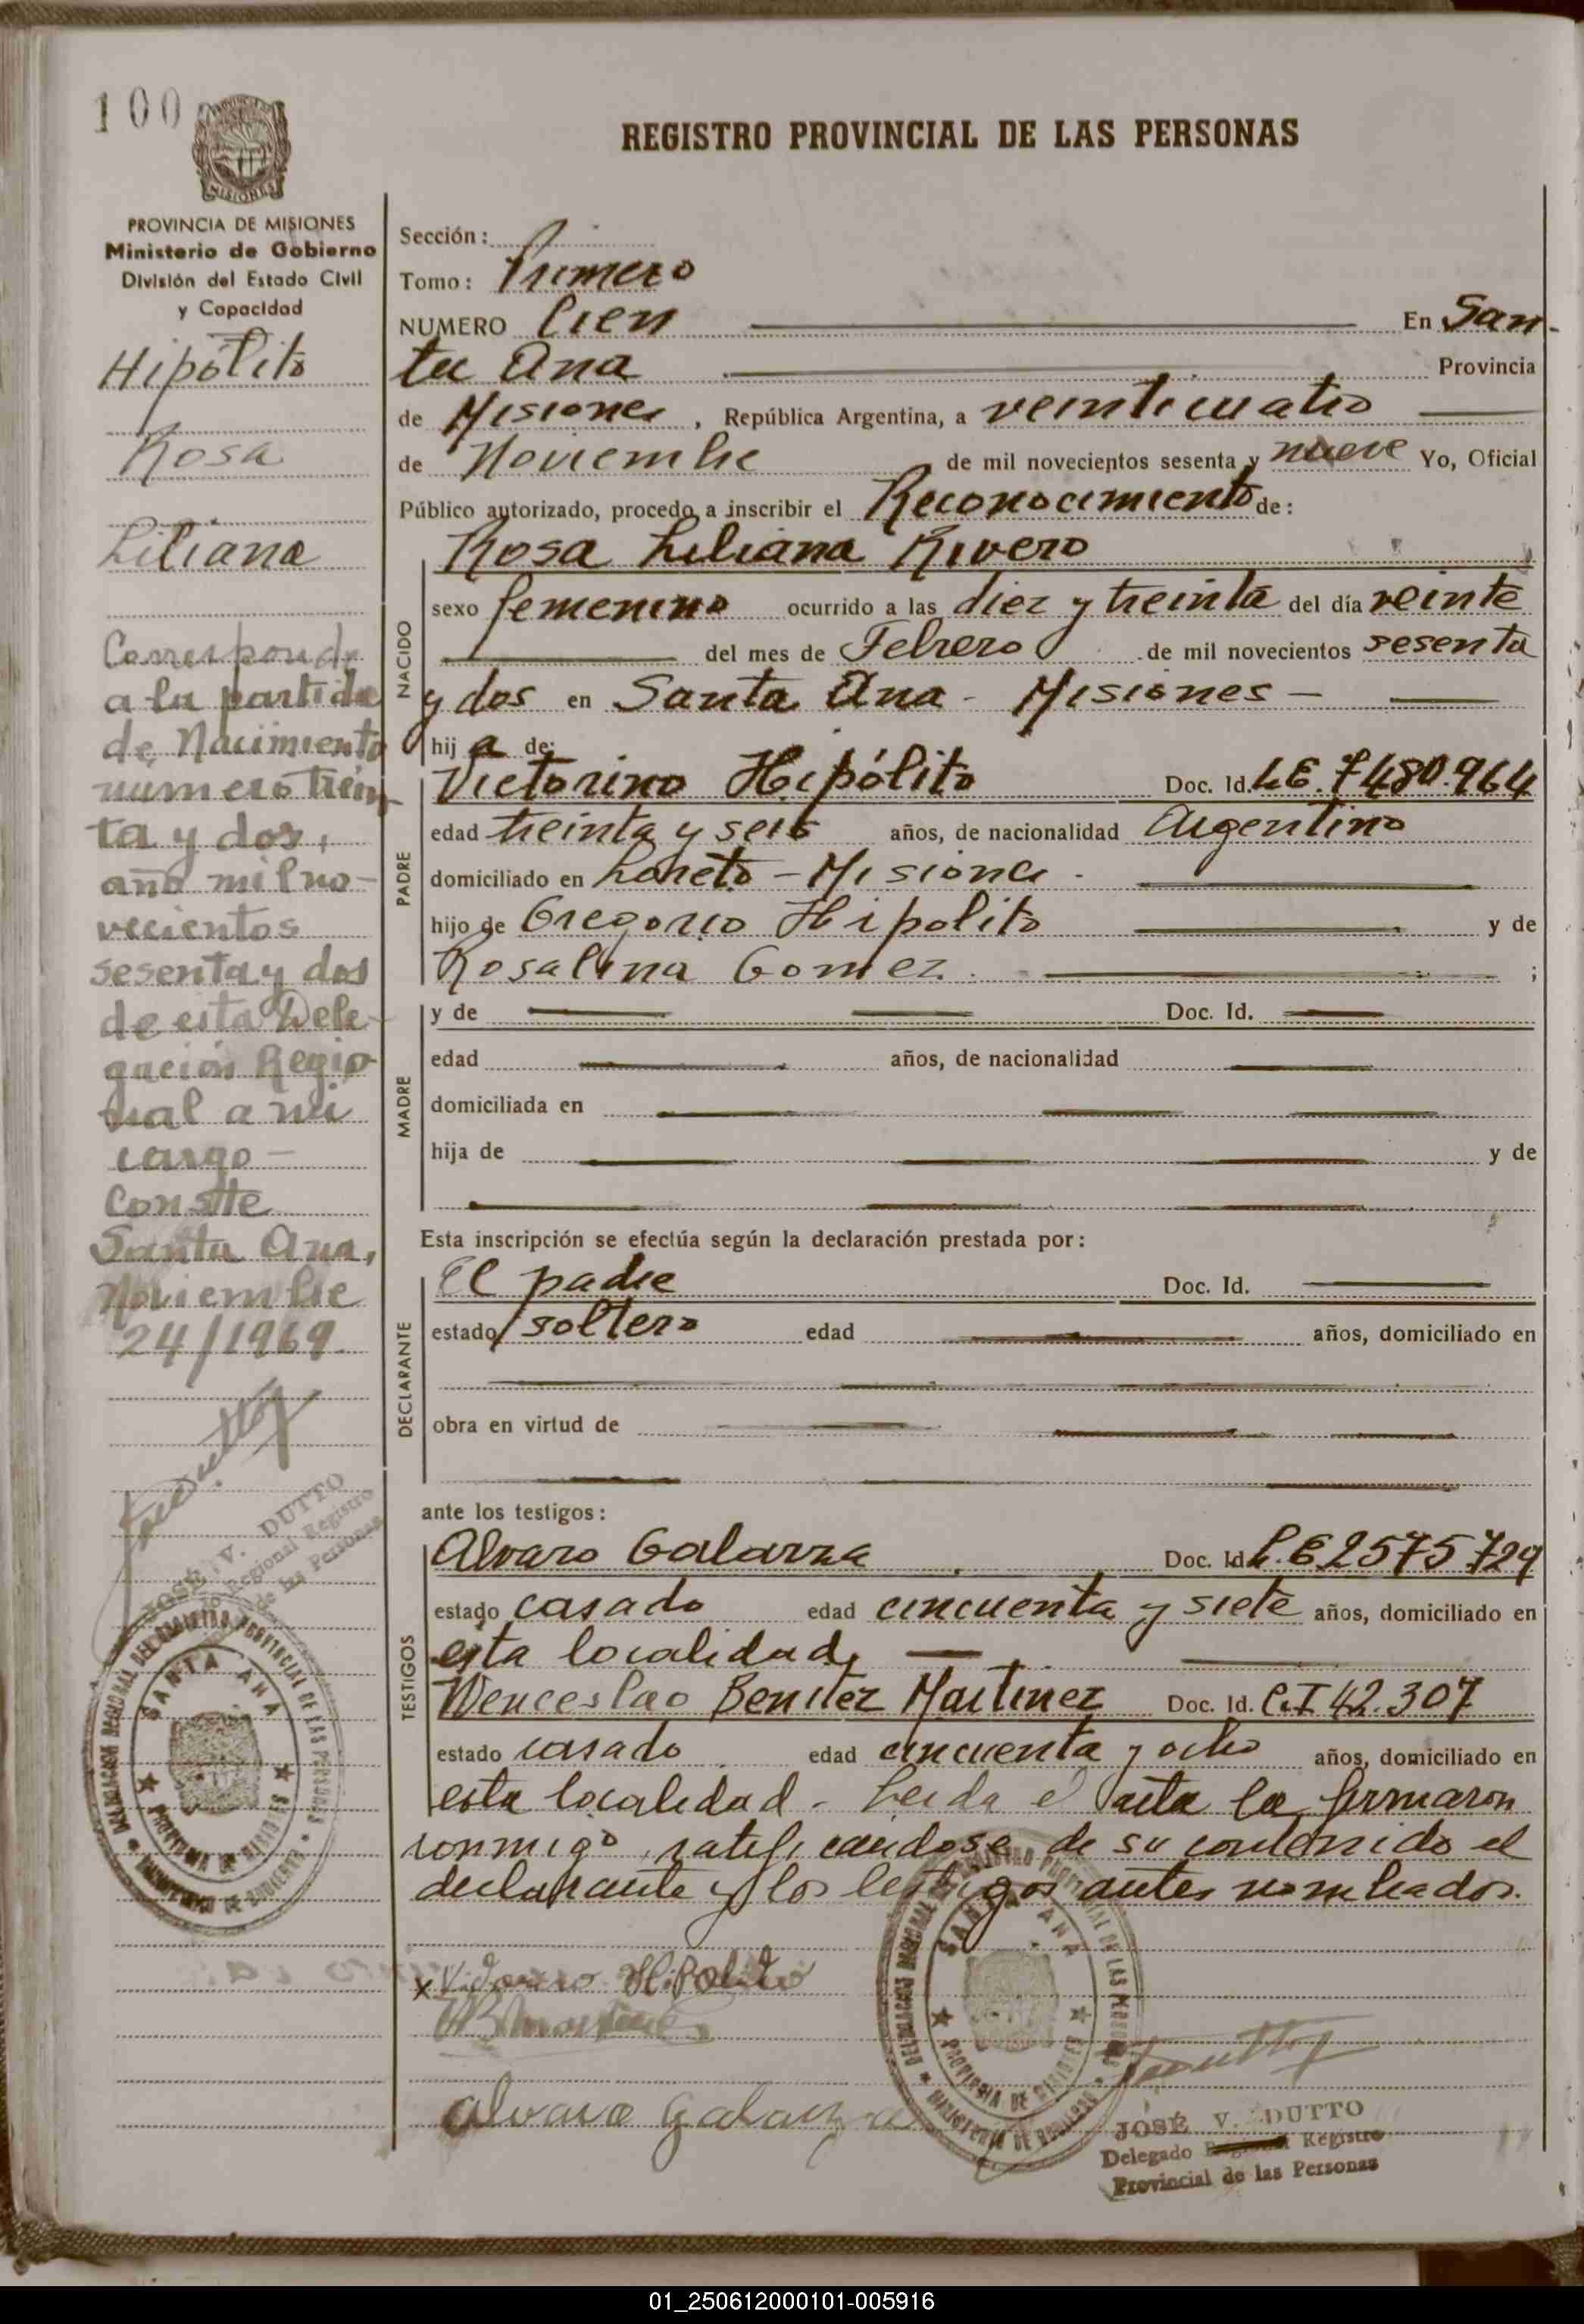 100
MISIONES
PROVINCIA DE MISIONES
Ministerio de Gobierno
División del Estado Civil
y Capacidad
Hipólito
Rosa
Liliana
Corresponde
a la partida
de Nacimiento
numero trein
ta y dos,
año mil no-
vecientos
sesenta y dos
de esta Dele-
gación Regio
nal a mi
cargo -
Constte
Santa Ana,
Noviembre
24/1969.
JOSÉ V. DUTTO
Regional Registro
de las Personas
DELEGACION REGIONAL DEL REGISTRO PROVINCIAL DE LAS PERSONAS
SANTA ANA
PROVINCIA DE MISIONES
MINISTERIO DE GOBIERNO
REGISTRO PROVINCIAL DE LAS PERSONAS
Sección:
Tomo: Primero
NUMERO Cien En San-
ta Ana Provincia
de Misiones, República Argentina, a veinticuatro
de Noviembre de mil novecientos sesenta y nueve Yo, Oficial
Público autorizado, procedo a inscribir el Reconocimiento de:
NACIDO
Rosa Liliana Rivero
sexo femenino ocurrido a las diez y treinta del día veinte
del mes de Febrero de mil novecientos sesenta
y dos en Santa Ana - Misiones -
hij a de:
PADRE
Victorino Hipólito Doc. Id. LE. 7480.964
edad treinta y seis años, de nacionalidad Argentino
domiciliado en Loreto - Misiones
hijo de Gregorio Hipolito y de
Rosalina Gomez ;
MADRE
y de Doc. Id.
edad años, de nacionalidad
domiciliada en
hija de y de
Esta inscripción se efectúa según la declaración prestada por:
DECLARANTE
El padre Doc. Id.
estado soltero edad años, domiciliado en
obra en virtud de
ante los testigos:
TESTIGOS
Alvaro Galarza Doc. Id. L.E 2575729
estado casado edad cincuenta y siete años, domiciliado en
esta localidad,
Wenceslao Benitez Martinez Doc. Id. C.I 42.307
estado casado edad cincuenta y ocho años, domiciliado en
esta localidad - Leida el acta la firmaron
conmigo, ratificandose de su contenido el
declarante y los testigos antes nombrados.
x Victorino Hipolito
Alvaro Galarza
DELEGACION REGIONAL DEL REGISTRO PROVINCIAL DE LAS PERSONAS
SANTA ANA
PROVINCIA DE MISIONES
MINISTERIO DE GOBIERNO
JOSÉ V. DUTTO
Delegado Registro
Provincial de las Personas
01_250612000101-005916